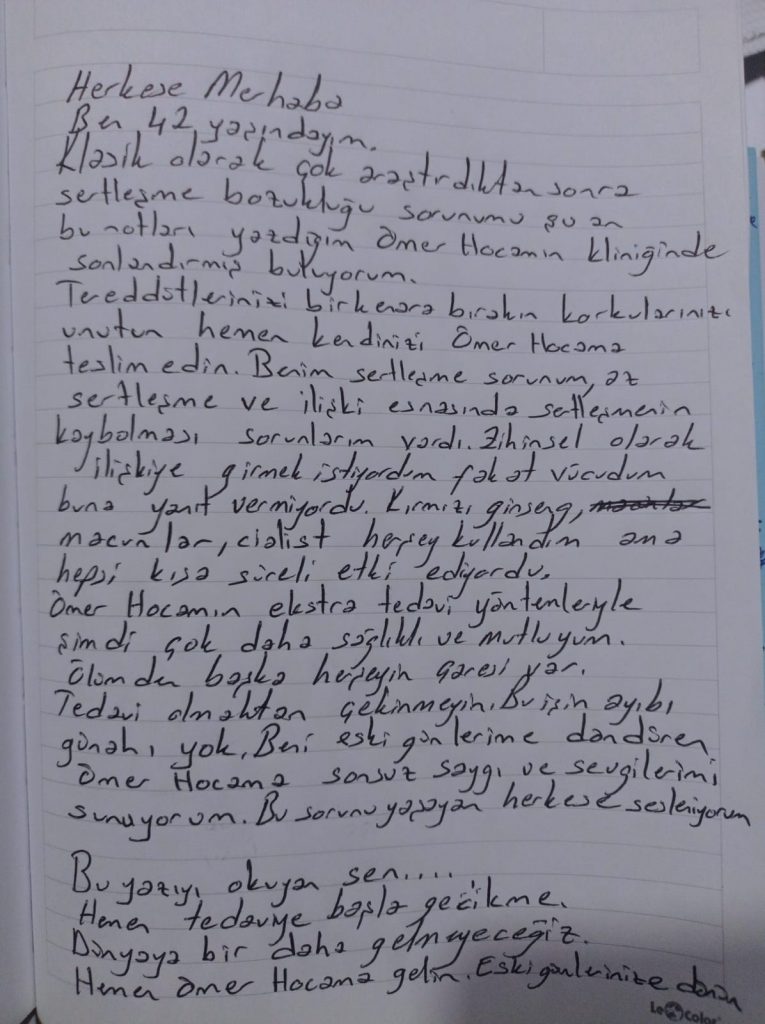 Herkese Merhaba
Ben 42 yaşındayım.
Klasik olarak çok araştırdıktan sonra
sertleşme bozukluğu sorunumu şu an
bu notları yazdığım Ömer Hocamın kliniğinde
sonlandırmış buluyorum.
Tereddütlerinizi bir kenara bırakın korkularınızı
unutun hemen kendinizi Ömer Hocama
teslim edin. Benim sertleşme sorunum, az
sertleşme ve ilişki esnasında sertleşmenin
kaybolması sorunlarım vardı. Zihinsel olarak
ilişkiye girmek istiyordum fakat vücudum
buna yanıt vermiyordu. Kırmızı ginseng,
macunlar, cialist herşey kullandım ama
hepsi kısa süreli etki ediyordu.
Ömer Hocamın ekstra tedavi yöntemleriyle
şimdi çok daha sağlıklı ve mutluyum.
Ölümden başka herşeyin çaresi var.
Tedavi olmaktan çekinmeyin. Bu işin ayıbı
günahı yok. Beni eski günlerime döndüren
Ömer Hocama sonsuz saygı ve sevgilerimi
sunuyorum. Bu sorunu yaşayan herkese sesleniyorum
Bu yazıyı okuyan sen....
Hemen tedaviye başla gecikme.
Dünyaya bir daha gelmeyeceğiz.
Hemen Ömer Hocama gelin. Eski günlerinize dönün
Le Color